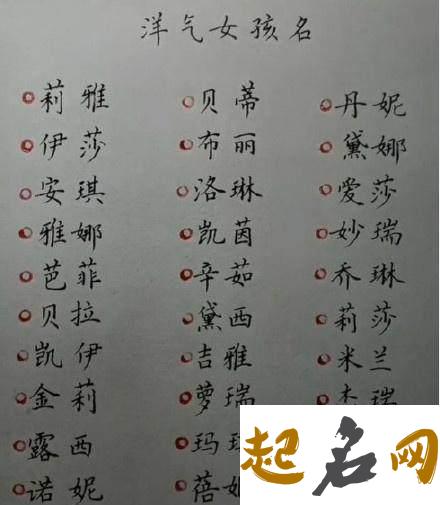 洋气女孩名
莉雅 贝蒂 丹妮
伊莎 布丽 黛娜
安琪 洛琳 爱莎
雅娜 凯茵 妙瑞
芭菲 辛茹 乔琳
贝拉 黛西 莉莎
凯伊 吉雅 米兰
金莉 萝瑞
露西 玛
诺妮 蓓
起名网